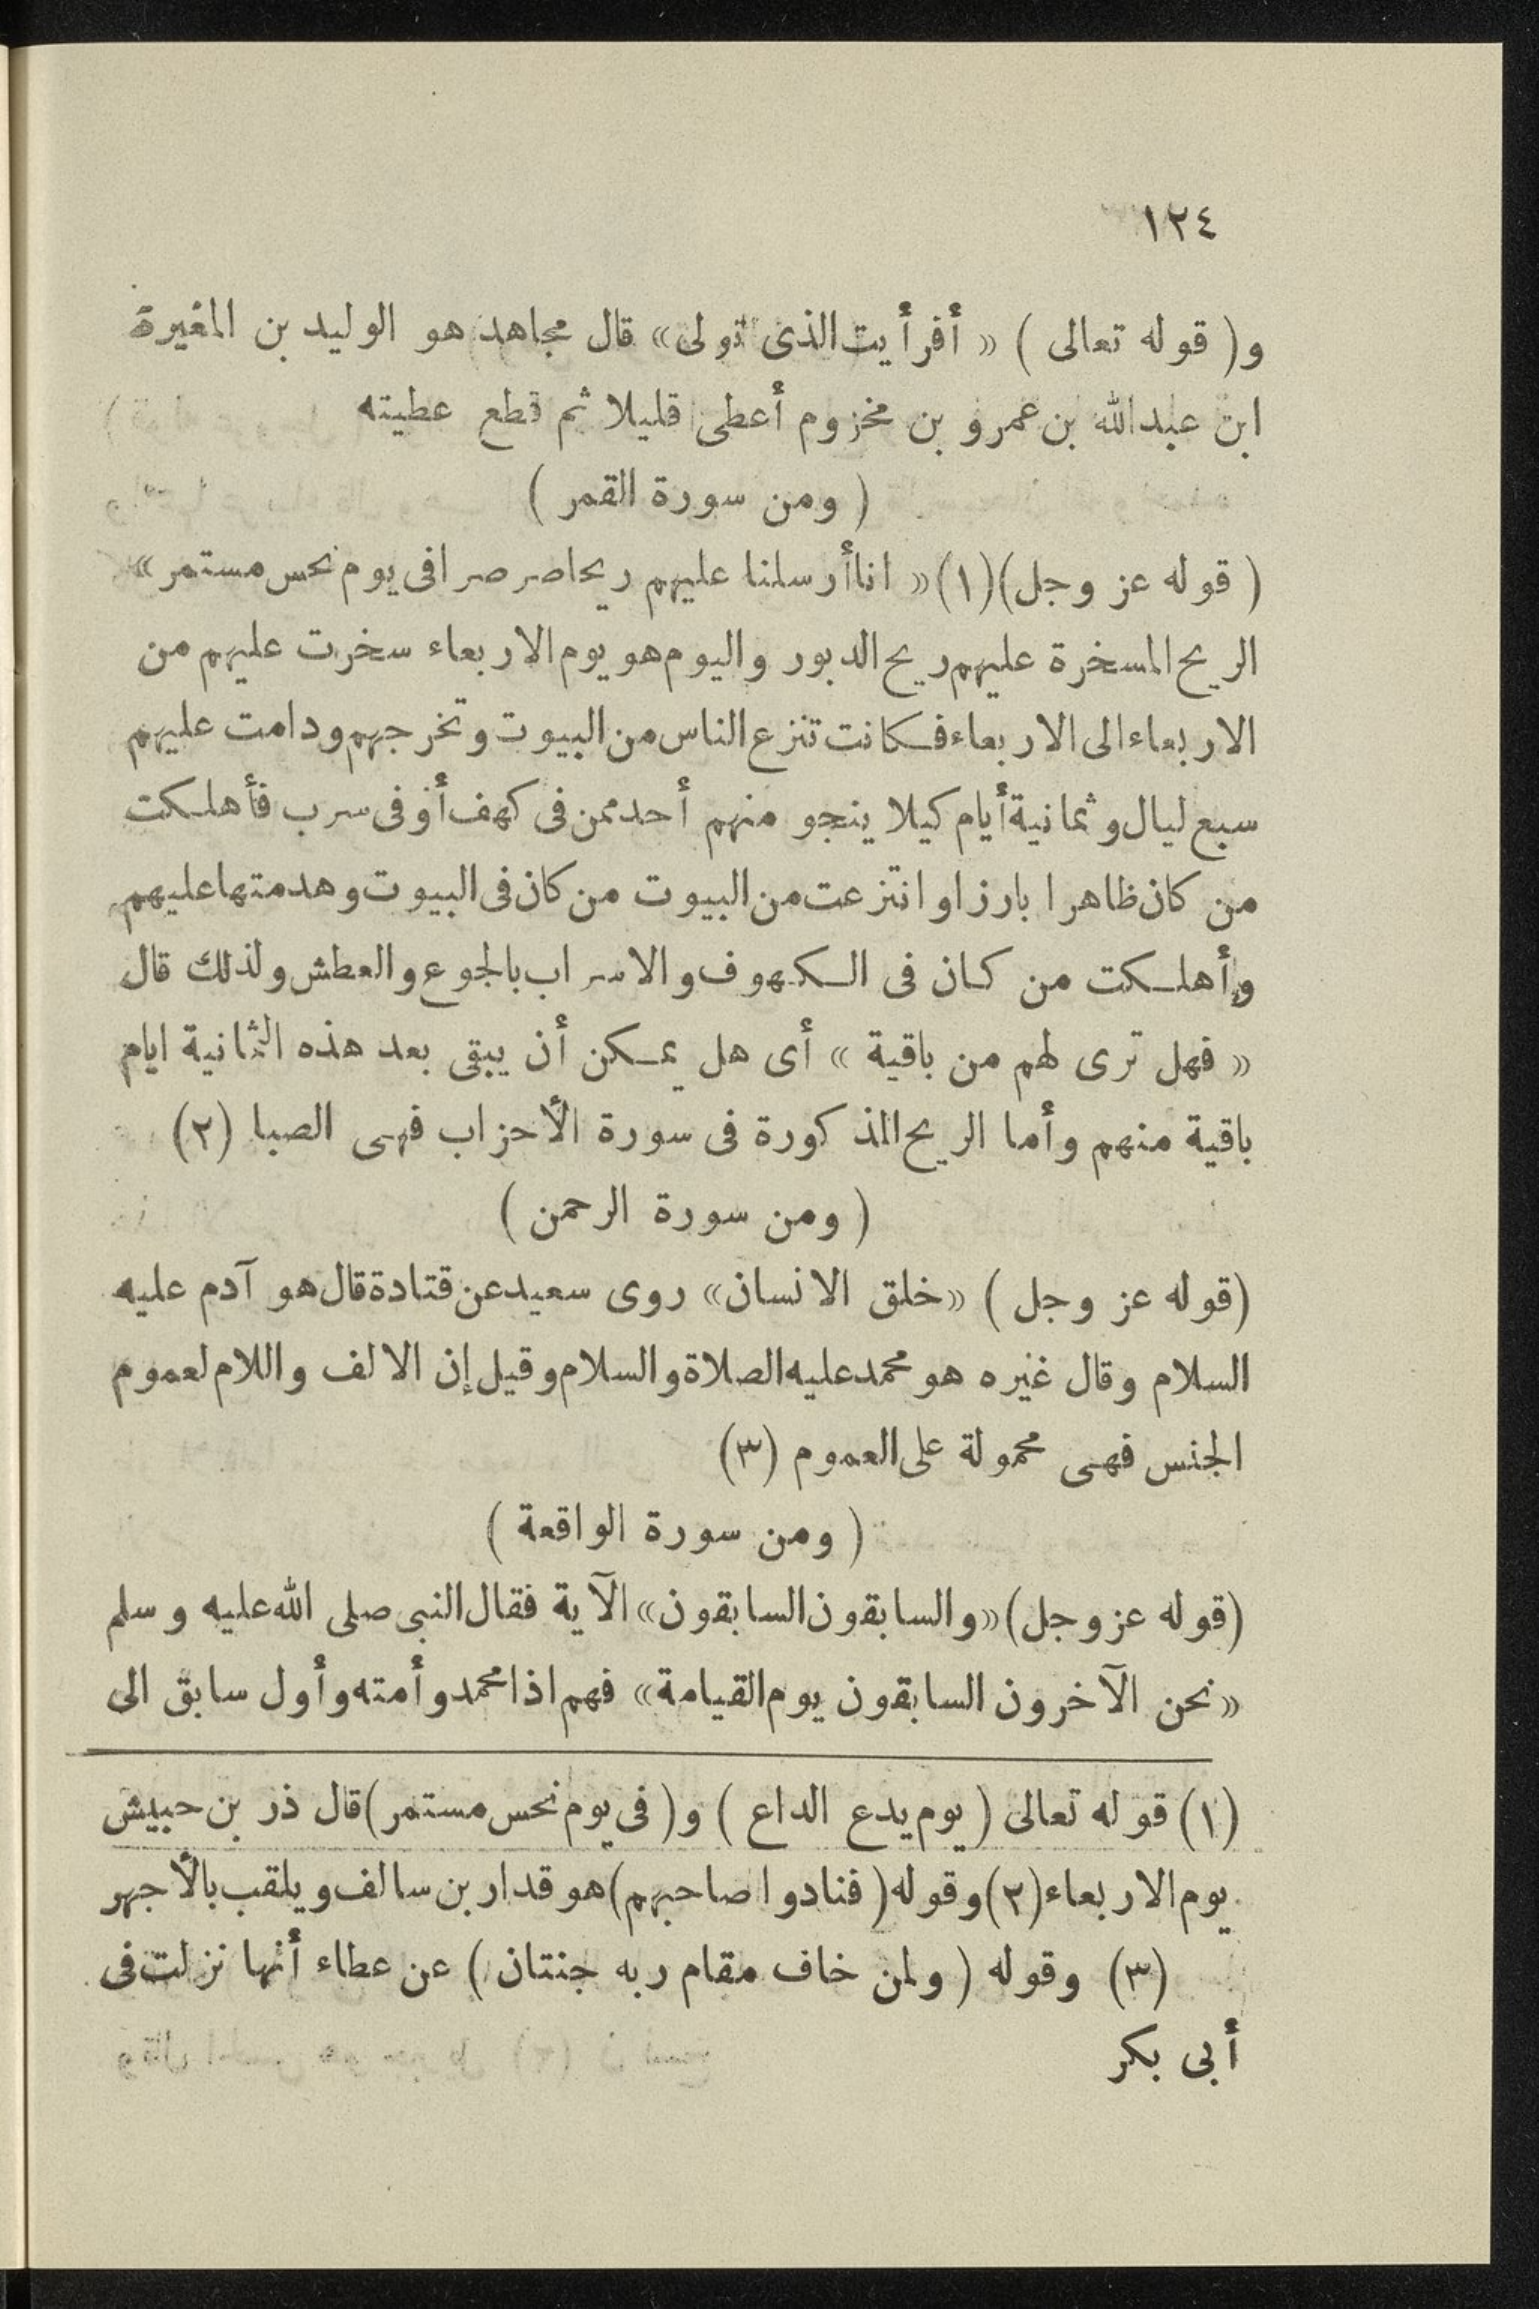 ١٢٤
و( قوله تعالى ) « أفرأيت الذى تولى» قال مجاهد هو الوليد بن المغيرة
ابن عبدالله بن عمرو بن مخزوم أعطى قليلا ثم قطع عطيته
( ومن سورة القمر )
( قوله عز وجل)(١)« اناأرسلنا عليهم ريحاصرصرا فى يوم نحس مستمر »
الريح المسخرة عليهم ريح الدبور واليوم هو يوم الاربعاء سخرت عليهم من
الاربعاء الى الاربعاء فكانت تنزع الناس من البيوت وتخرجهم ودامت عليهم
سبع ليال وثمانية أيام كيلا ينجو منهم أحد ممن فى كهف أو فى سرب فأهلكت
من كان ظاهرا بارزا وانتزعت من البيوت من كان فى البيوت وهدمتها عليهم
وأهلكت من كان فى الكهوف والاسراب بالجوع والعطش ولذلك قال
« فهل ترى لهم من باقية » أى هل يمكن أن يبقى بعد هذه الثمانية ايام
باقية منهم وأما الريح المذكورة فى سورة الأحزاب فهى الصبا (٢)
( ومن سورة الرحمن )
(قوله عز وجل ) «خلق الانسان» روى سعيد عن قتادة قال هو آدم عليه
السلام وقال غيره هو محمد عليه الصلاة والسلام وقيل إن الالف واللام لعموم
الجنس فهى محمولة على العموم (٣)
( ومن سورة الواقعة )
(قوله عز وجل)«والسابقون السابقون» الآية فقال النبى صلى الله عليه وسلم
«نحن الآخرون السابقون يوم القيامة» فهم اذا محمد وأمته وأول سابق الى
(١) قوله تعالى ( يوم يدع الداع ) و( فى يوم نحس مستمر)قال ذر بن حبيش
يوم الاربعاء(٢)وقوله( فنادوا صاحبهم)هو قدار بن سالف ويلقب بالأجهر
(٣) وقوله ( ولمن خاف مقام ربه جنتان ) عن عطاء أنها نزلت فى
أبى بكر